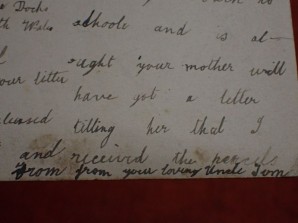 Docks
Wales schoole and is al-
ought your mother will
your letter have got a letter
leased telling her that I
and received the
From from your loving Uncle Tom